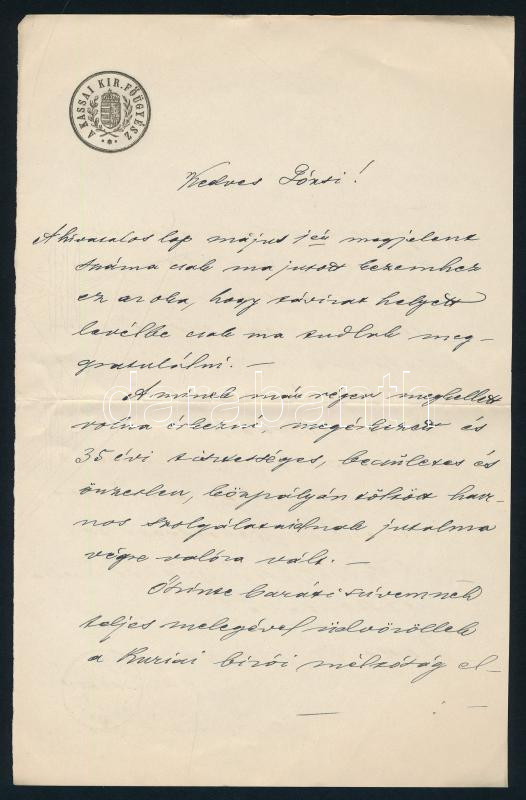 A KASSAI KIR. FŐÜGYÉSZ
Kedves Józsi!
A hivatalos lap május 1én megjelent
száma csak ma jutott kezemhez
ez az oka, hogy távirat helyett
levélbe csak ma tudlak meg-
gratulálni. —
darabanth
Aminek már régen meg kellett
volna érkezni, megérkezett és
35 évi tisztességes, becsületes és
önzetlen, közpályán töltött hasz-
nos szolgálataidnak jutalma
végre valóra vált. —
Őszinte baráti szivemnek
teljes melegével üdvözöllek
a Kuriai birói méltóság el-